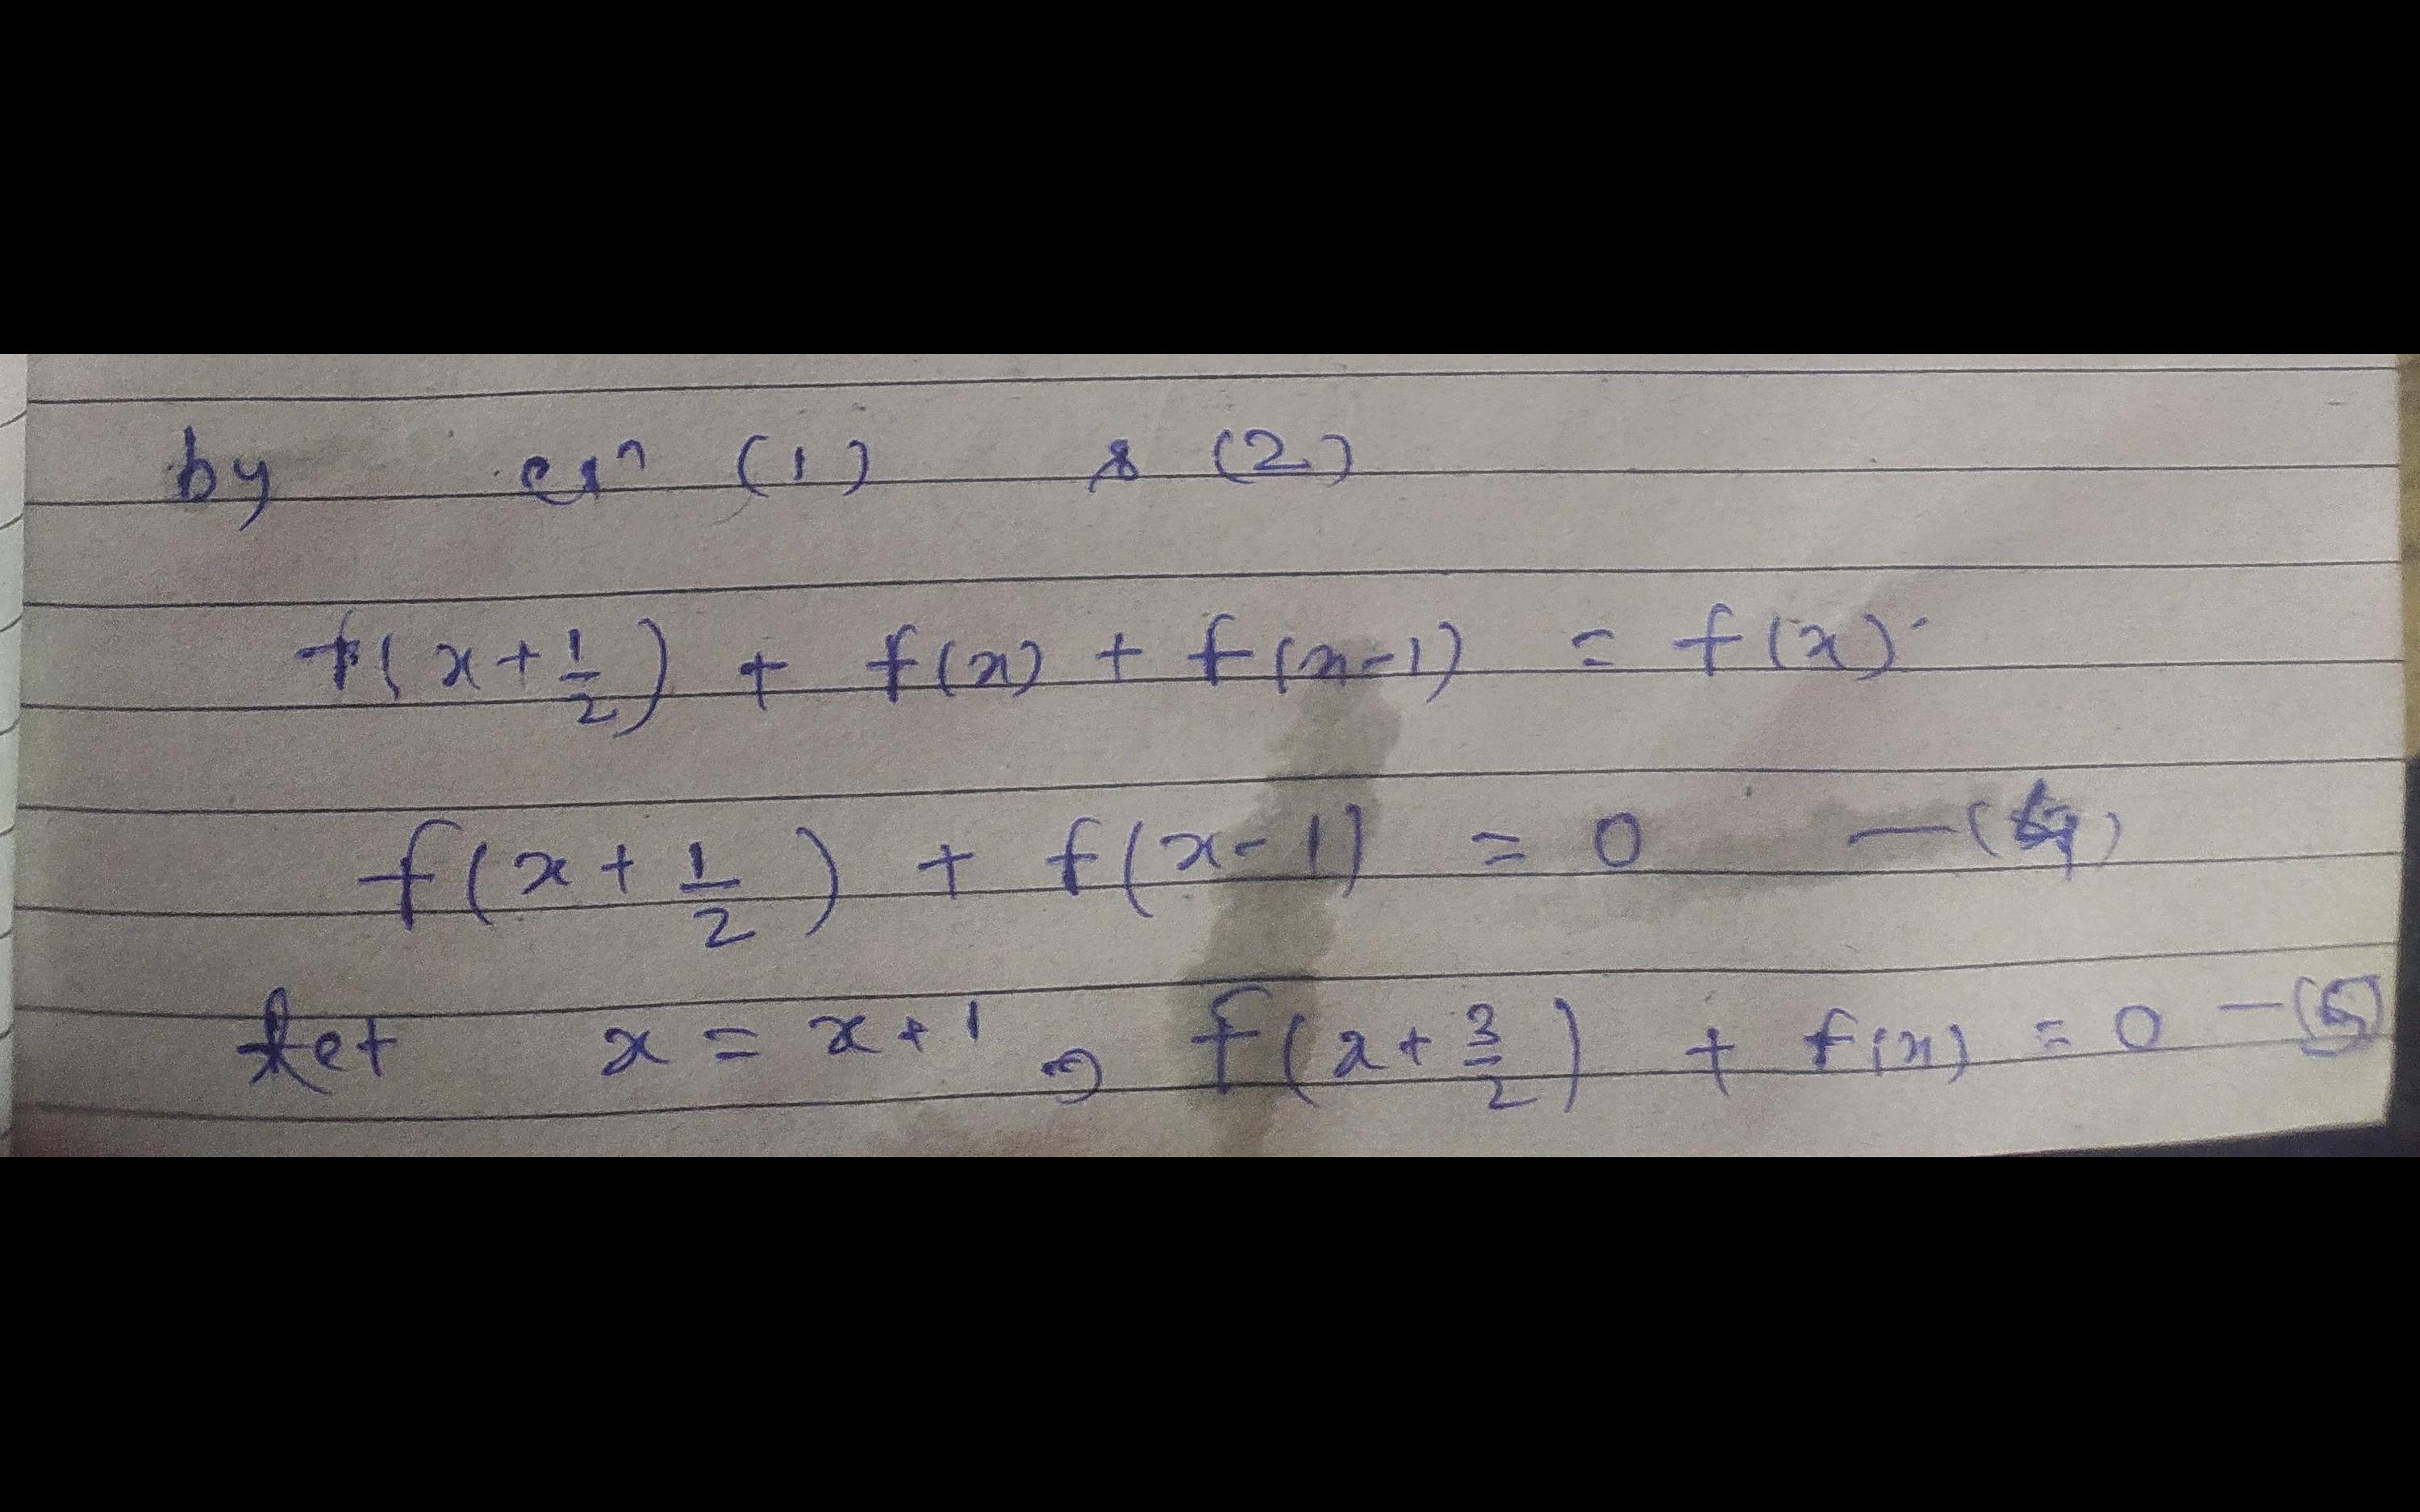 by eqⁿ (1) & (2)
f(x+1/2) + f(x) + f(x-1) = f(x)
f(x+1/2) + f(x-1) = 0 —(4)
Let x = x+1, f(x+3/2) + f(x) = 0 —(5)